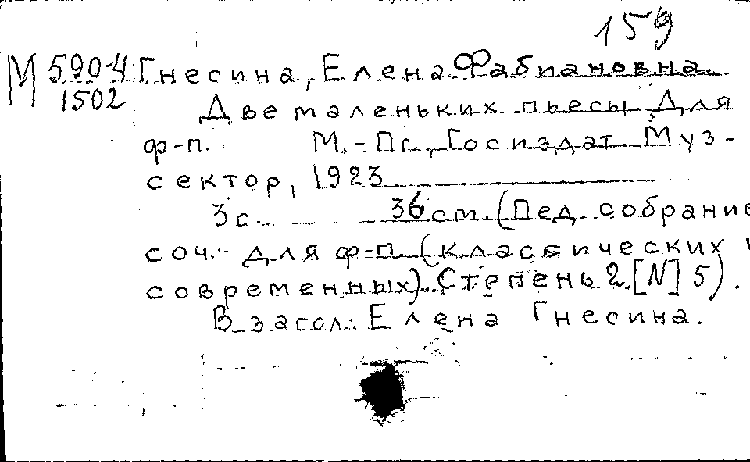 159
М 5904 Гнесина, Елена Фабиановна
1502
Две маленьких пьесы Для
ф-п. М.-Пг., Госиздат Муз-
сектор, 1923
3с. 36 см. (Пед. собрание
соч. для ф-п (классических и
современных). Степень 2. [N] 5).
В загол.: Елена Гнесина.